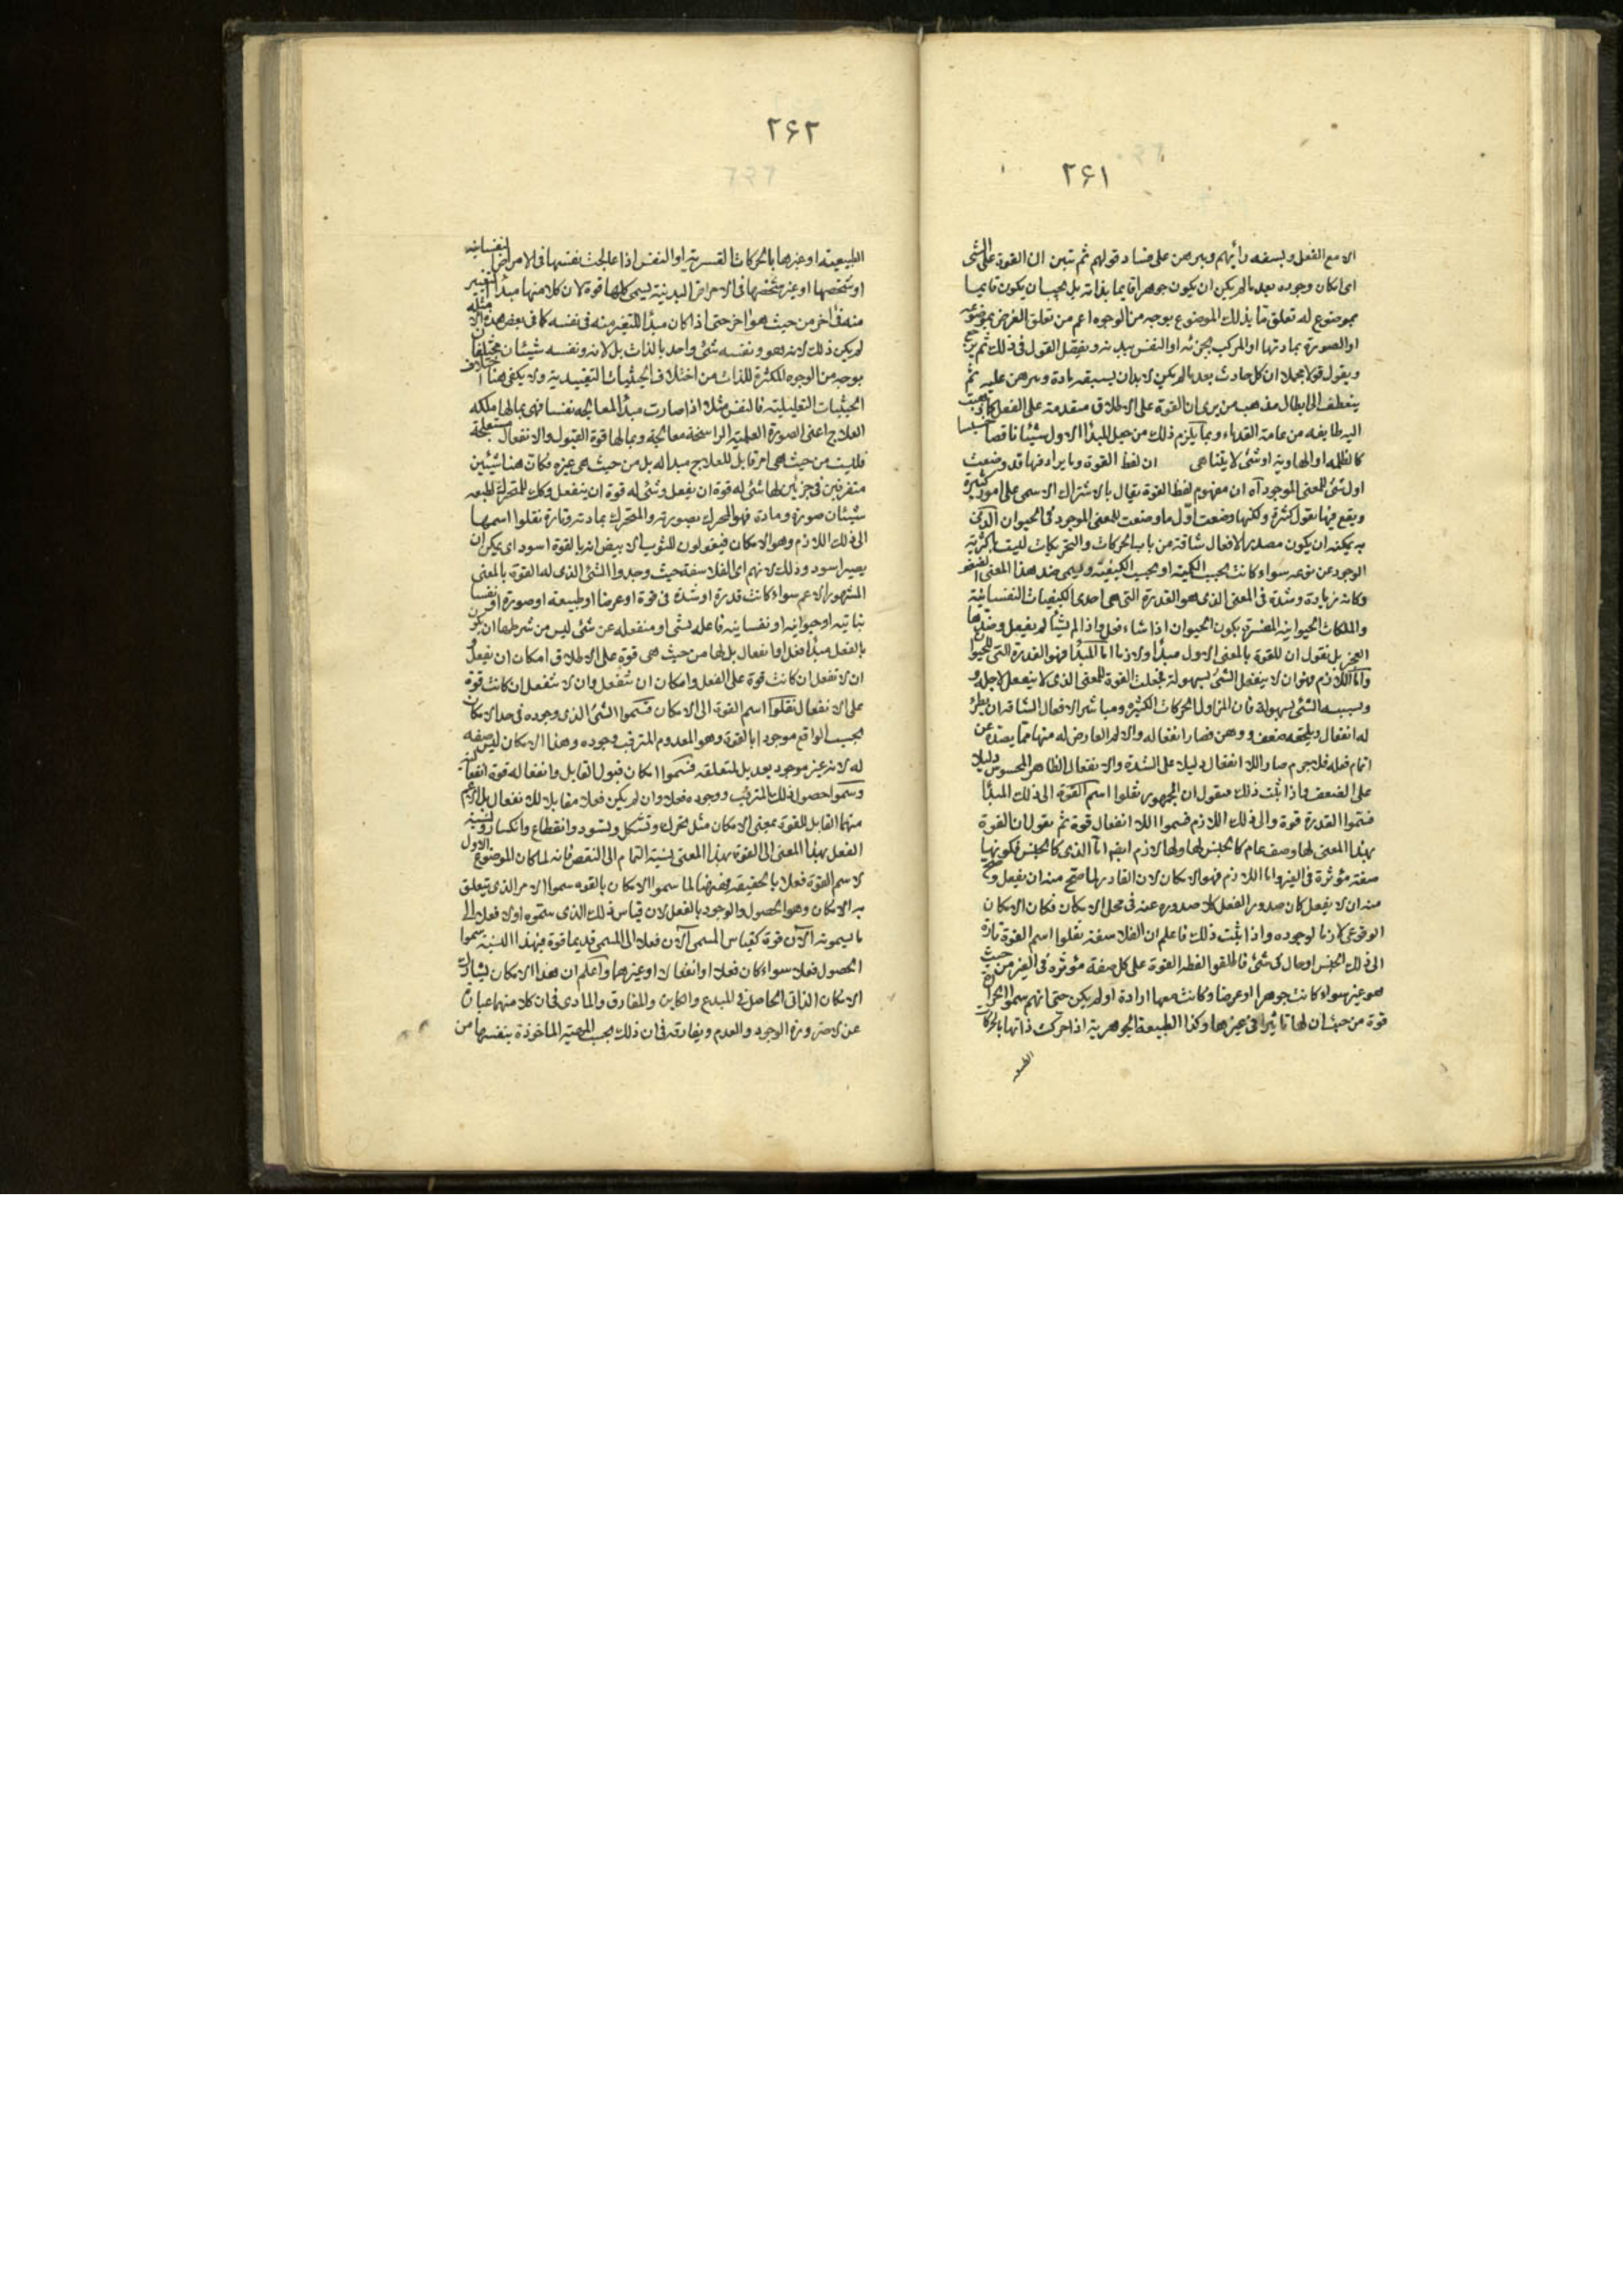 ٢۶١
الا مع الفعل ويسفه رأيهم ويبرهن على فساد قولهم ثم تبين ان القوة على الشى
اى امكان وجوده بعد ما لم يكن ان يكون جوهرا قايما بذاته بل يجب ان يكون قايما
بموضوع له تعلق ما بذلك الموضوع بوجه من الوجوه اعم من تعلق العرض بموضوعه
او الصورة بمادتها او المركب بجزئه او النفس ببدنه ويفصل القول فى ذلك ثم يرجع
ويقول قولا مجملا ان كل حادث بعد ما لم يكن لا بد ان يسبقه مادة ويبرهن عليه ثم
ينعطف الى ابطال مذهب من يرى ان القوة على الاطلاق متقدمة على الفعل كما ذهبت
اليه طايفه من عامة القدماء وبما يلزم ذلك من جعل المبدأ الاول شيئا ناقصا خسيسا
كالظلمه او الهاوية او شئ لا يتناهى ان لفظ القوة وما يرادفها قد وضعت
اول شئ للمعنى الموجود آه ان مفهوم لفظ القوة يقال بالاشتراك الاسمى على امور كثيرة
ويقع فيها نقول كثرة ولكنها وضعت اول ما وضعت للمعنى الموجود فى الحيوان الذى
به يمكنه ان يكون مصدرا لافعال شاقة من باب الحركات والتحريكات ليست باكثرية
الوجود عن نوعه سواء كانت بحسب الكمية او بحسب الكيفية ويسمى ضد هذا المعنى الضعف
وكانه زيادة وشدة فى المعنى الذى هو القدرة التى هى احدى الكيفيات النفسانية
والملكات الحيوانية المفسرة بكون الحيوان اذا شاء فعل واذا لم يشأ لم يفعل وضدها
العجز بل نقول ان للقوة بالمعنى الاول مبدأ ولازما اما المبدأ فهو القدرة التى للحيوان
واما اللازم فهو ان لا ينفعل الشئ بسهولة فجعلت القوة للمعنى الذى لا ينفعل لاجله
وبسببه الشئ بسهولة فان المزاول للحركات الكثيره ومباشر الافعال الشاقه ان يطرء
له انفعال ويلحقه ضعف ووهن فصار انفعاله والالم العارض له منها مما يصده عن
اتمام فعله فلا جرم صار اللا انفعال دليلا على الشدة والانفعال الظاهر المحسوس دليلا
على الضعف فاذا ثبت ذلك فنقول ان الجمهور نقلوا اسم القوة الى ذلك المبدأ
فسموا القدرة قوة والى ذلك اللازم فسموا اللا انفعال قوة ثم نقول ان القوة
بهذا المعنى لها وصف عام كالجنس لها ولها لازم ايضا اما الذى كالجنس فكونها
صفة مؤثرة فى الغير واما اللازم فهو الامكان لان القادر لما صح منه ان يفعل وصح
منه ان لا يفعل كان صدور الفعل كلا صدوره عنه فى محل الامكان فكان الامكان
الوقوعى لازما لوجوده واذا ثبت ذلك فاعلم ان الفلاسفة نقلوا اسم القوة تارة
الى ذلك الجنس او حال فى شئ فاطلقوا لفظ القوة على كل صفة مؤثره فى الغير من حيث
هو غير سواء كانت جوهرا او عرضا وكانت معها ارادة او لم يكن حتى انهم سموا الحرارة
قوة من حيث ان لها تاثيرا فى غيرها وكذا الطبيعة الجوهرية اذا حركت ذاتها بالحركات
الطبيعيه
٢۶٢
الطبيعية او غيرها بالحركات القسرية او النفس اذا عالجت نفسها فى الامراض النفسانيه
او شخصها او غير شخصها فى الامراض البدنية يسمى كلها قوة لان كلا منها مبدأ التغيير
منه فى آخر من حيث هو آخر حتى اذا كان مبدأ للتغير منه فى نفسه كما فى بعض هذه الامثله
لم يكن ذلك لانه هو ونفسه شئ واحد بالذات بل لانه ونفسه شيئان مختلفان
بوجه من الوجوه المكثرة للذات من اختلاف الحيثيات التقييدية ولا يكفى هنا اختلاف
الحيثيات التعليلية فالنفس مثلا اذا صارت مبدأ لمعالجه نفسا فهى بما لها ملكه
العلاج اعنى الصورة العلمية الراسخة معالجة وبما لها قوة القبول والانفعال مستعلجة
فليست من حيث هى امر قابل للعلاج مبدأ له بل من حيث هى غيره فكانت هنا شيئين
متفرقين فى جزئين لها شئ له قوة ان يفعل وشئ له قوة ان ينفعل وكذلك للمتحرك بطبعه
شيئان صورة ومادة فهو المحرك بصورته والمتحرك بمادته وتارة نقلوا اسمها
الى ذلك اللازم وهو الامكان فيقولون للثوب الابيض انه بالقوة اسود اى يمكن ان
يصير اسود وذلك لانهم اى الفلاسفه حيث وجدوا الشئ الذى له القوة بالمعنى
المشهور الاعم سواء كانت قدرة او شدة فى قوة او عرضا او طبيعه او صورة او نفسا
نباتيه او حيوانيه او نفسانيه فاعله لشئ او منفعله عن شئ ليس من شرطها ان يكون
بالفعل مبدأ فعل او انفعال بل لها من حيث هى قوة على الاطلاق امكان ان يفعل و
ان لا تفعل ان كانت قوة على الفعل وامكان ان تنفعل وان لا تنفعل ان كانت قوة
على الانفعال نقلوا اسم القوة الى الامكان فسموا الشئ الذى وجوده فى حد الامكان
بحسب الواقع موجودا بالقوة وهو المعدوم المترقب وجوده وهذا الامكان ليس صفه
له لانه غير موجود بعد بل لمتعلقه فسموا امكان قبول القابل وانفعاله قوة انفعالية
وسموا حصول ذلك المترقب ووجوده فعلا وان لم يكن فعلا مقابلا للانفعال بل الاعم
منهما القابل للقوة بمعنى الامكان مثل تحرك وتشكل وتسود وانقطاع وانكسار ونسبة
الفعل بهذا المعنى الى القوة بهذا المعنى نسبة التمام الى النقص فانه لما كان الموضوع الاول
لاسم القوة فعلا بالحقيقه فههنا لما سموا الامكان بالقوه سموا الامر الذى يتعلق
به الامكان وهو الحصول والوجود بالفعل لان قياس ذلك الذى سموه اولا فعلا الى
ما يسمونه الآن قوة كقياس المسمى الآن فعلا الى المسمى قديما قوة فبهذا النسبة سموا
الحصول فعلا سواء كان فعلا او انفعالا او غيرهما واعلم ان هذا الامكان يشارك
الامكان الذاتى الحاصل فى المبدع والكاين والمفارق والمادى فى ان كلا منهما عبارة
عن لا ضرورة الوجود والعدم ويفارقه فى ان ذلك بحسب المهية الماخوذة بنفسها من